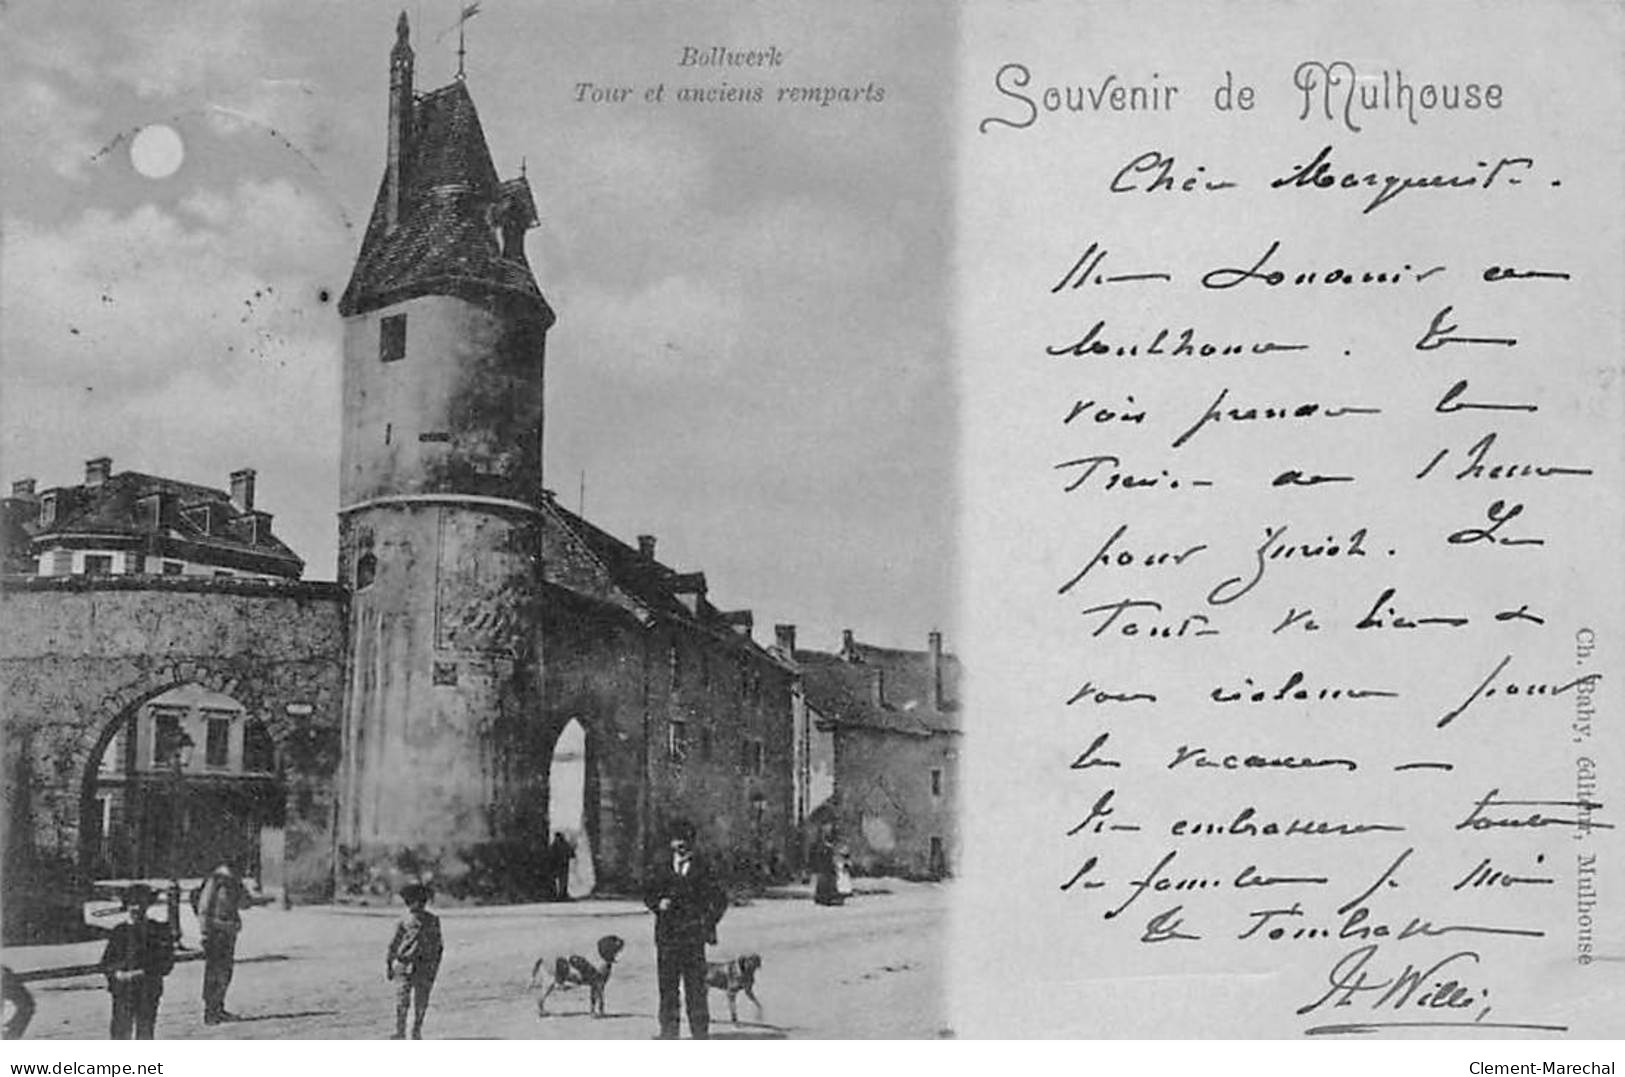 Bollwerk
Tour et anciens remparts
Souvenir de Mulhouse
Chère Marguerite.
Un Souvenir de
Mulhouse. Je
vais prendre le
Train à 1 heure
pour Zurich.
Tout va bien et
vous pour
les vacances —
embrasser toute
la famille p. moi
Je T'embrasse
Willi,
Ch. Bahy, éditeur, Mulhouse
delcampe.net
Clement-Marechal